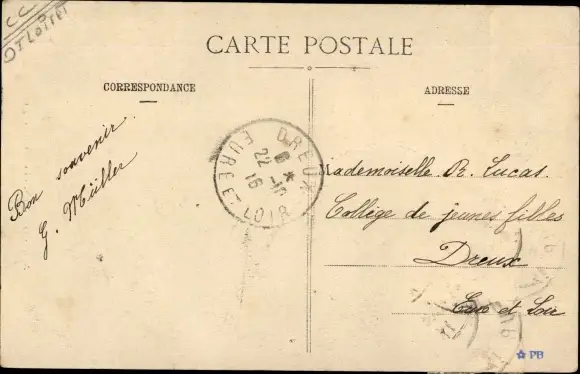 CARTE POSTALE
CORRESPONDANCE
ADRESSE
Bon souvenir.
G. Müller
DREUX
EURE-ET-LOIR
Mademoiselle R. Lucas.
Collège de jeunes filles
Dreux
Eure et Loir
PB